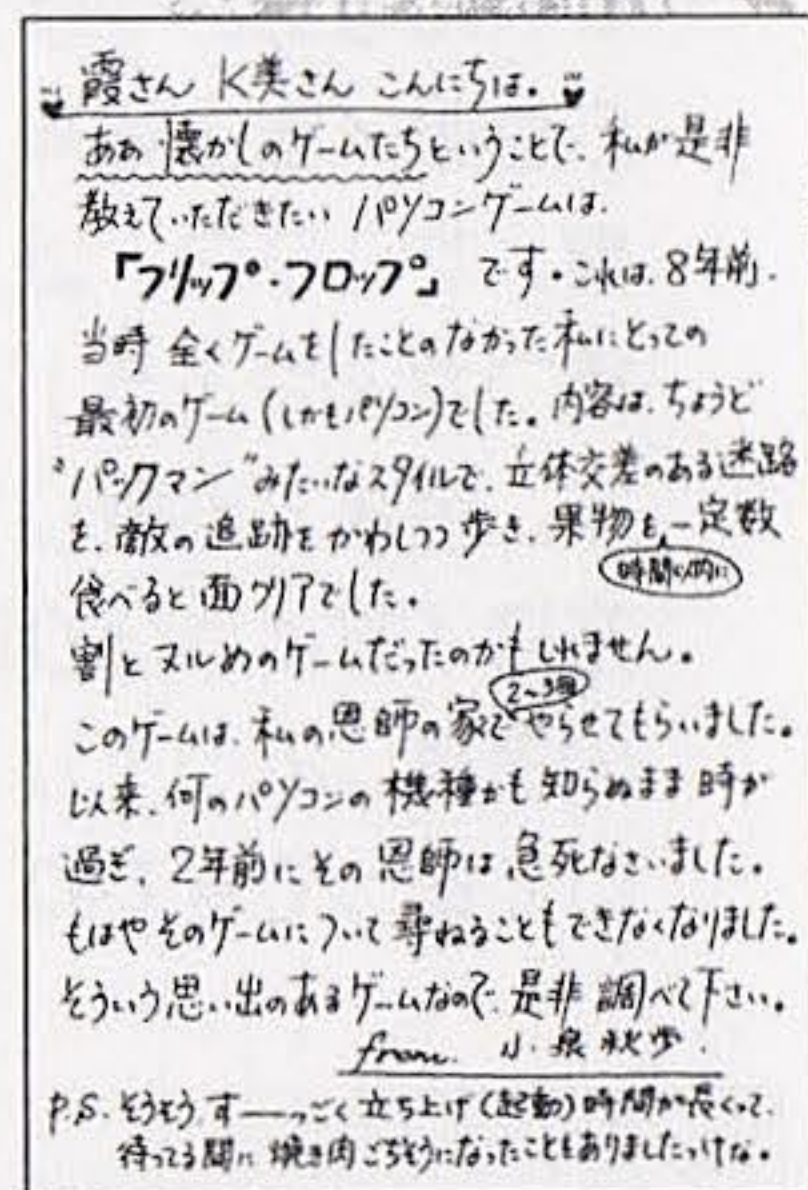 霞さん K美さん こんにちは。
ああ 懐かしのゲームたちということで、私が是非
教えていただきたい パソコンゲームは、
「フリップ・フロップ」です。これは、8年前、
当時 全くゲームをしたことのなかった私にとっての
最初のゲーム(しかもパソコン)でした。内容は、ちょうど
"パックマン"みたいなスタイルで、立体交差のある迷路
を、敵の追跡をかわしつつ歩き、果物を、一定数
時間以内に
食べると面クリアでした。
割とヌルめのゲームだったのかもしれません。
2〜3回
このゲームは、私の恩師の家でやらせてもらいました。
以来、何のパソコンの機種かも知らぬまま時が
過ぎ、2年前にその恩師は急死なさいました。
もはやそのゲームについて尋ねることもできなくなりました。
そういう思い出のあるゲームなので、是非調べて下さい。
from. 小泉秋歩.
P.S. そうそう、すーーっごく立ち上げ(起動)時間が長くって、
待ってる間に焼き肉ごちそうになったこともありましたっけな。